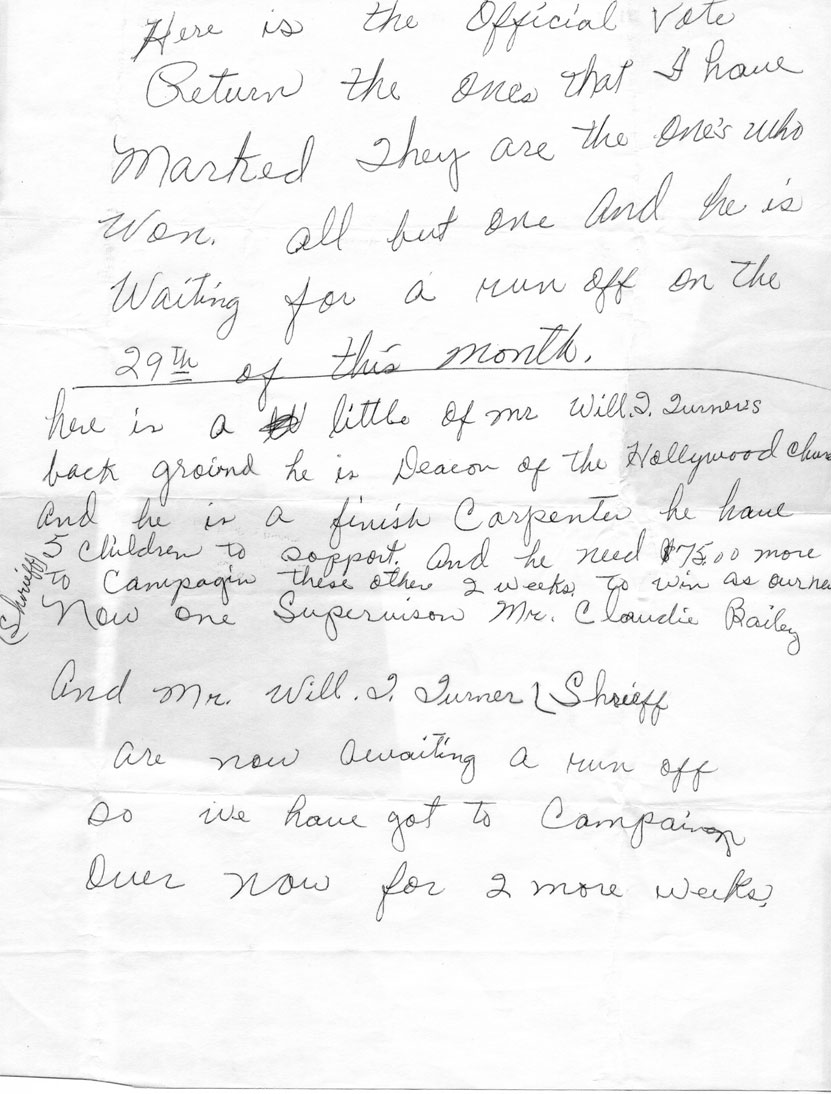 Here is the Official Vote
Return the ones that I have
Marked They are the one's who
Won. all but one And he is
Waiting for a run off on the
29th of this month.
here is a little of mr Will.I. Turner's
back ground he is Deacon of the Hollywood
And he is a finish Carpenter he have
5 Children to support. And he need $75.00 more
to Campagin these other 2 weeks, to win as our
(Shrieff)
Now one Supervison Mr. Claudie Bailey
And Mr. Will. I. Turner (Shrieff
are now awaiting a run off
so we have got to Campaign
Over now for 2 more weeks.